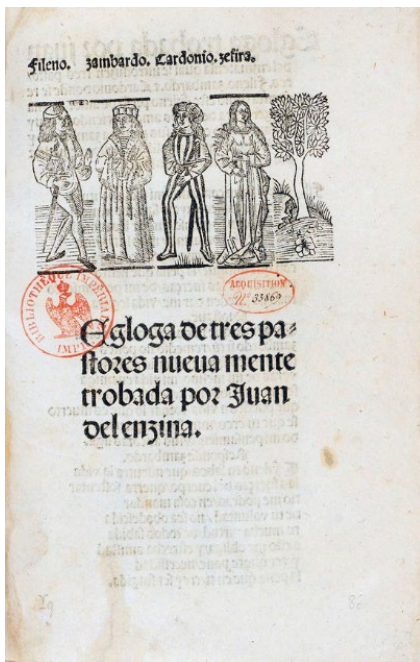 Fileno. zambardo. Cardonio. zefira.
BIBLIOTHEQUE IMPERIALE
IMPR
ACQUISITION
Nº 33860
Egloga de tres pa-
stores nueua mente
trobada por Juan
del enzina.
Yg